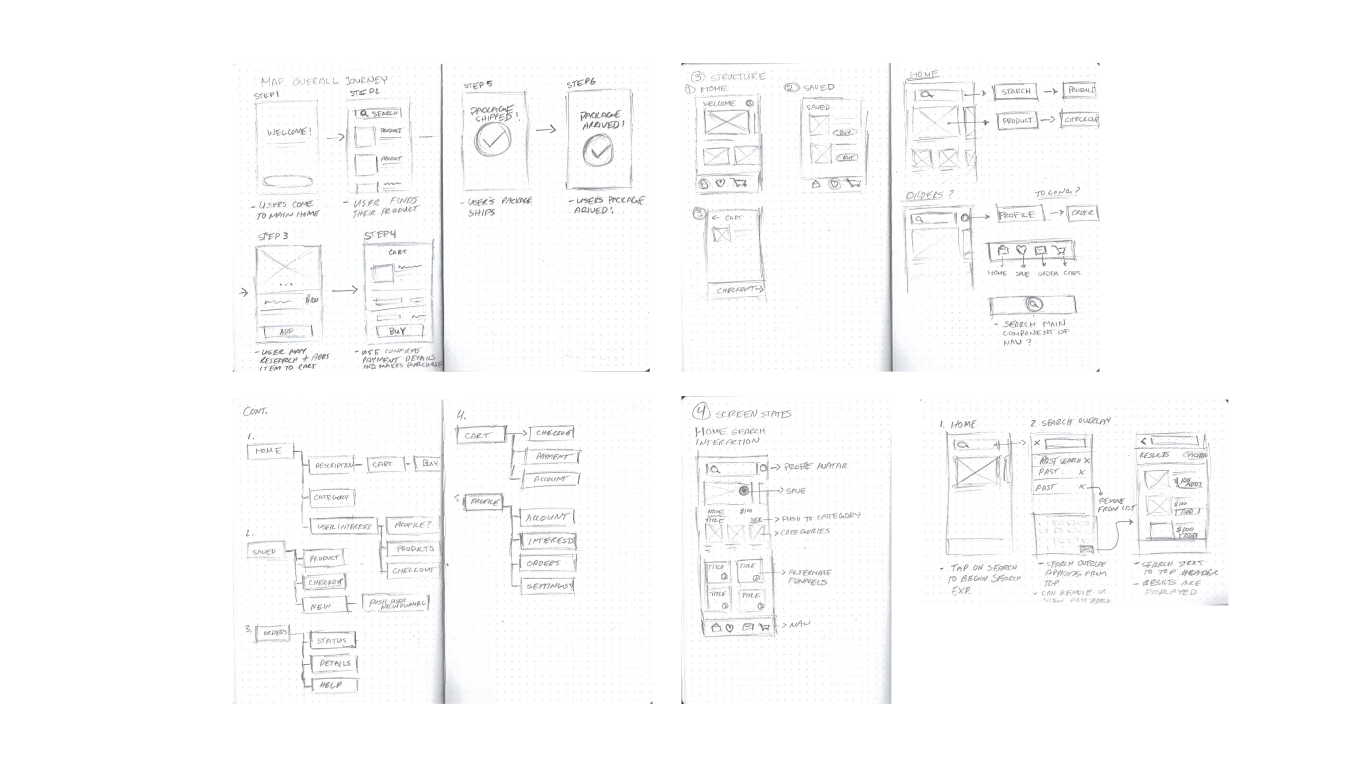 MAP OVERALL JOURNEY
STEP1
WELCOME!
- USERS COME
TO MAIN HOME
STEP2
SEARCH
PRODUCT
PRODUCT
- USER FINDS
THEIR PRODUCT
STEP 3
$100
ADD
- USER MAY
RESEARCH + ADDS
ITEM TO CART
STEP4
CART
BUY
PAYMENT DETAILS
AND MAKES PURCHASE
STEP 5
PACKAGE
SHIPPED!
- USER'S PACKAGE
SHIPS
STEP6
PACKAGE
ARRIVED!
- USERS PACKAGE
ARIVED!
3 STRUCTURE
1 HOME
WELCOME
2 SAVED
SAVED
BUY
BUY
3
← CART
CHECKOUT→
HOME
SEARCH
PRODUCT
ORDERS?
TO LONG?
PROFILE
ORDER
HOME SAVE ORDER CART
- SEARCH MAIN
COMPONENT OF
NAV?
CONT.
1.
HOME
DESCRIPTION
CART
BUY
CATEGORY
USER INTERESTS
PROFILE?
PRODUCTS
CHECKOUT
2.
SAVED
PRODUCT
CHECKOUT
NEW
PUSH USER
NEW FUNNEL
3.
ORDERS
STATUS
DETAILS
HELP
4.
CART
CHECKOUT
PAYMENT
ACCOUNT
5.
PROFILE
ACCOUNT
INTERESTS
ORDERS
SETTINGS
4 SCREEN STATES
HOME SEARCH
INTERACTION
PROFILE AVATAR
SAVE
NAME $100
TITLE
PUSH TO CATEGORY
CATEGORIES
TITLE TITLE
ALTERNATE
FUNNELS
TITLE TITLE
NAV
1. HOME
- TAP ON SEARCH
TO BEGIN SEARCH
EXP.
2 SEARCH OVERLAY
X
PAST SEARCH X
PAST X
PAST X
REMOVE
FROM LIST
- SEARCH OVERLAY
APPEARS FROM
TOP
- CAN REMOVE OR
RESULTS
$100
ADD
$100
$100
- SEARCH STICKS
TO TOP HEADER
- RESULTS ARE
DISPLAYED